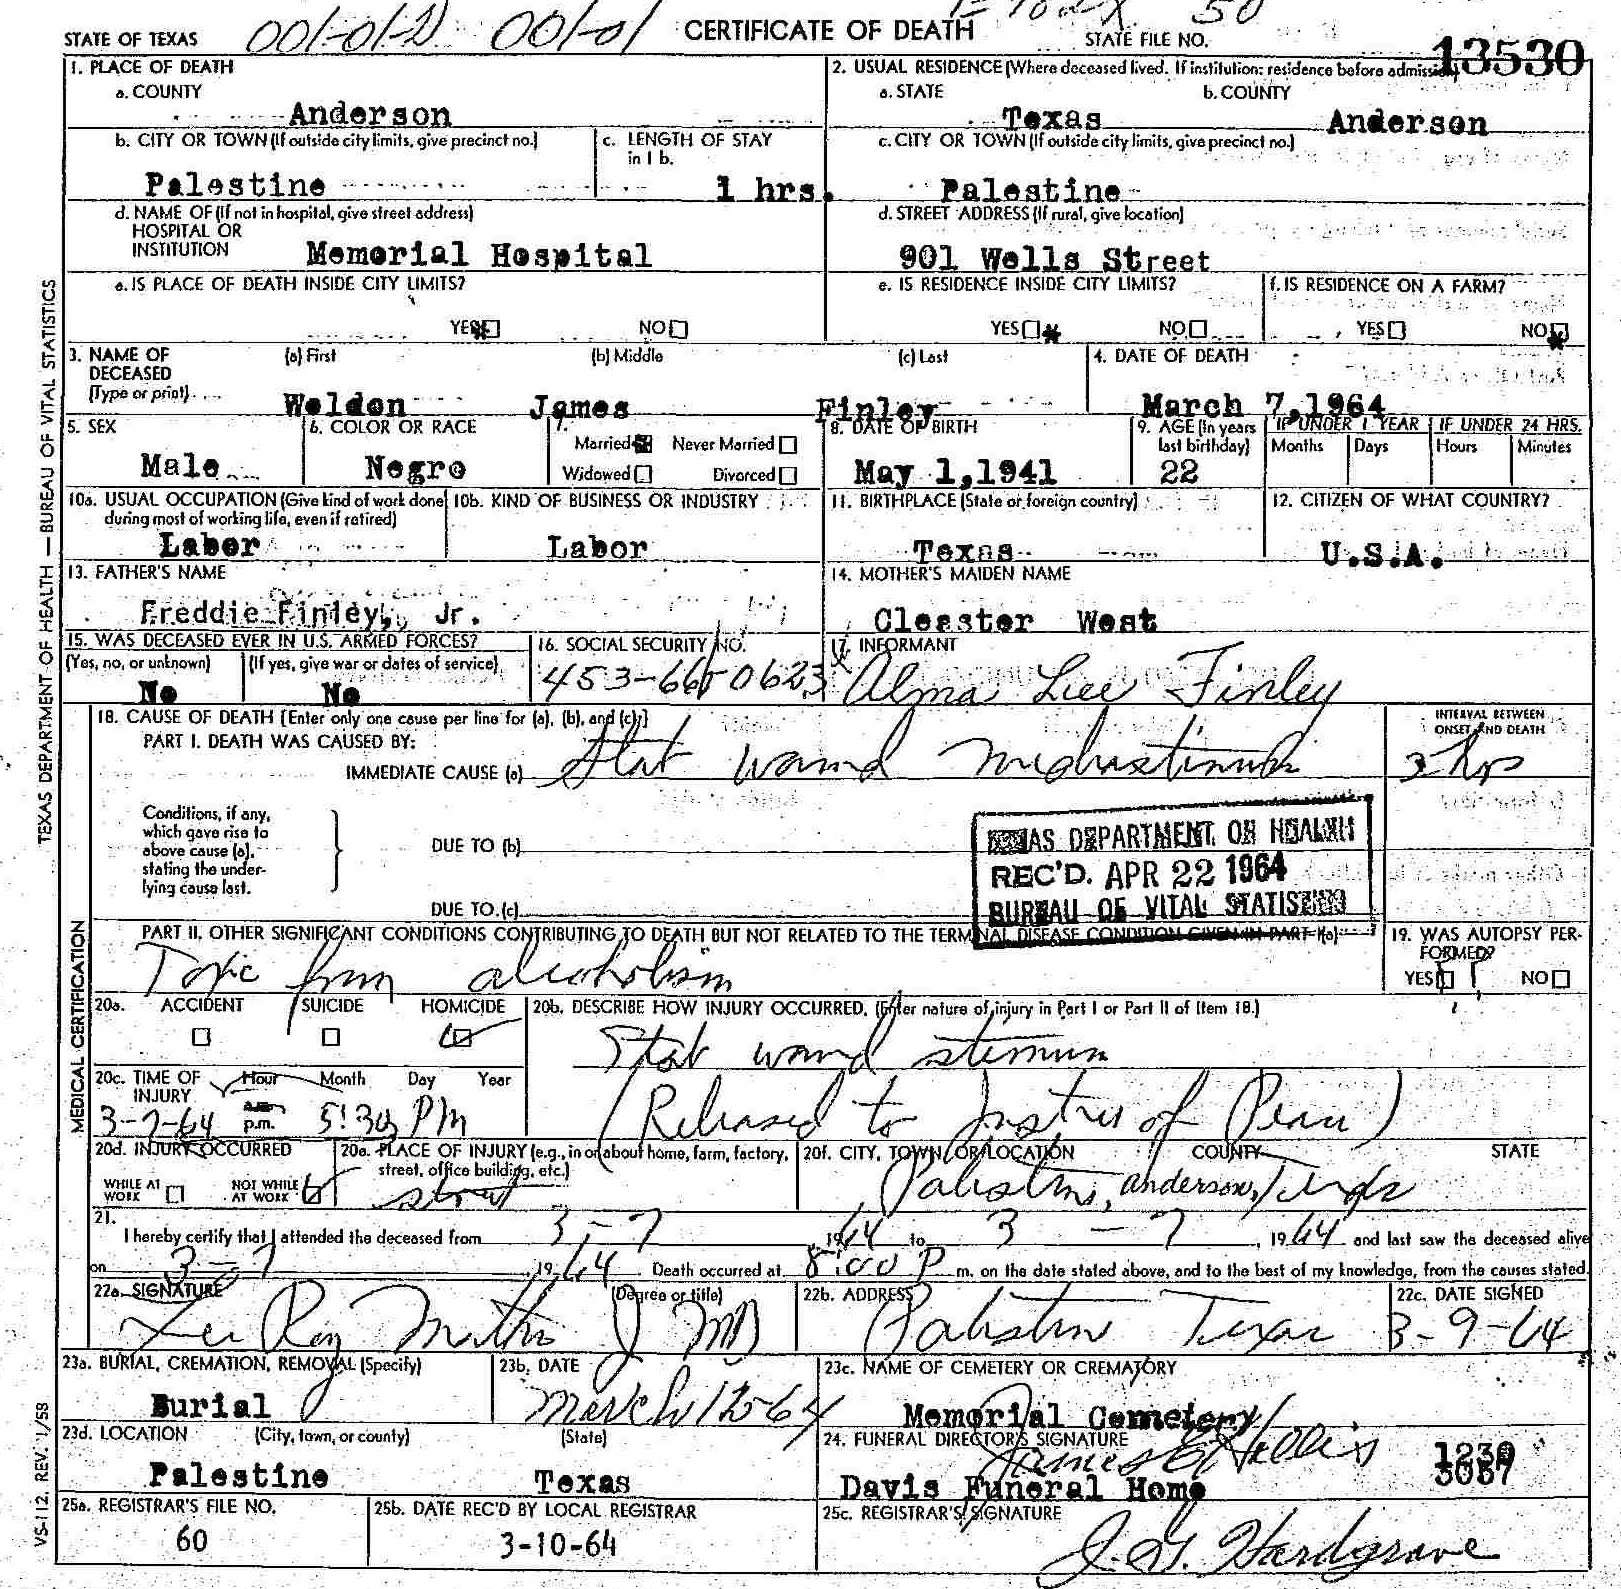 001-01-2 001-01
STATE OF TEXAS
CERTIFICATE OF DEATH
STATE FILE NO.
13530
1. PLACE OF DEATH
a. COUNTY
Anderson
2. USUAL RESIDENCE (Where deceased lived. If institution: residence before admission)
a. STATE
Texas
b. COUNTY
Anderson
b. CITY OR TOWN (If outside city limits, give precinct no.)
Palestine
c. LENGTH OF STAY
in 1 b.
1 hrs.
c. CITY OR TOWN (If outside city limits, give precinct no.)
Palestine
d. NAME OF (If not in hospital, give street address)
HOSPITAL OR
INSTITUTION
Memorial Hospital
d. STREET ADDRESS (If rural, give location)
901 Wells Street
e. IS PLACE OF DEATH INSIDE CITY LIMITS?
YES NO
e. IS RESIDENCE INSIDE CITY LIMITS?
YES NO
f. IS RESIDENCE ON A FARM?
YES NO
3. NAME OF
DECEASED
(Type or print)
(a) First (b) Middle (c) Last
Weldon James Finley
4. DATE OF DEATH
March 7,1964
5. SEX
Male
6. COLOR OR RACE
Negro
7.
Married Never Married
Widowed Divorced
8. DATE OF BIRTH
May 1,1941
9. AGE (In years
last birthday)
22
IF UNDER 1 YEAR
Months Days
IF UNDER 24 HRS.
Hours Minutes
10a. USUAL OCCUPATION (Give kind of work done
during most of working life, even if retired)
Labor
10b. KIND OF BUSINESS OR INDUSTRY
Labor
11. BIRTHPLACE (State or foreign country)
Texas
12. CITIZEN OF WHAT COUNTRY?
U.S.A.
13. FATHER'S NAME
Freddie Finley, Jr.
14. MOTHER'S MAIDEN NAME
Cleaster West
15. WAS DECEASED EVER IN U.S. ARMED FORCES?
(Yes, no, or unknown) (If yes, give war or dates of service)
No No
16. SOCIAL SECURITY NO.
453-66-0623
17. INFORMANT
Alma Lee Finley
18. CAUSE OF DEATH [Enter only one cause per line for (a), (b), and (c).]
PART I. DEATH WAS CAUSED BY:
IMMEDIATE CAUSE (a) Stab wound mediastinum
INTERVAL BETWEEN
ONSET AND DEATH
hrs
Conditions, if any,
which gave rise to
above cause (a),
stating the under-
lying cause last.
DUE TO (b)
DUE TO (c)
TEXAS DEPARTMENT OF HEALTH
REC'D. APR 22 1964
BUREAU OF VITAL STATISTICS
PART II. OTHER SIGNIFICANT CONDITIONS CONTRIBUTING TO DEATH BUT NOT RELATED TO THE TERMINAL DISEASE CONDITION GIVEN IN PART I(a)
Toxic from alcoholism
19. WAS AUTOPSY PER-
FORMED?
YES NO
20a. ACCIDENT SUICIDE HOMICIDE
20b. DESCRIBE HOW INJURY OCCURRED. (Enter nature of injury in Part I or Part II of Item 18.)
Stab wound sternum
(Released to Justice of Peace)
20c. TIME OF
INJURY
Hour Month Day Year
a.m.
p.m.
3-7-64 5:30 PM
20d. INJURY OCCURRED
WHILE AT
WORK
NOT WHILE
AT WORK
20e. PLACE OF INJURY (e.g., in or about home, farm, factory,
street, office building, etc.)
street
20f. CITY, TOWN, OR LOCATION COUNTY STATE
Palestine, Anderson, Texas
21.
I hereby certify that I attended the deceased from 3-7, 1964 to 3-7, 1964 and last saw the deceased alive
on 3-7, 1964. Death occurred at 8:00 P m. on the date stated above, and to the best of my knowledge, from the causes stated.
22a. SIGNATURE (Degree or title)
MD
22b. ADDRESS
Palestine Texas
22c. DATE SIGNED
3-9-64
23a. BURIAL, CREMATION, REMOVAL (Specify)
Burial
23b. DATE
March 12-64
23c. NAME OF CEMETERY OR CREMATORY
Memorial Cemetery
23d. LOCATION (City, town, or county) (State)
Palestine Texas
24. FUNERAL DIRECTOR'S SIGNATURE
Davis Funeral Home
25a. REGISTRAR'S FILE NO.
60
25b. DATE REC'D BY LOCAL REGISTRAR
3-10-64
25c. REGISTRAR'S SIGNATURE
J. G. Hardgrave
TEXAS DEPARTMENT OF HEALTH — BUREAU OF VITAL STATISTICS
MEDICAL CERTIFICATION
VS-112, REV. 1/58